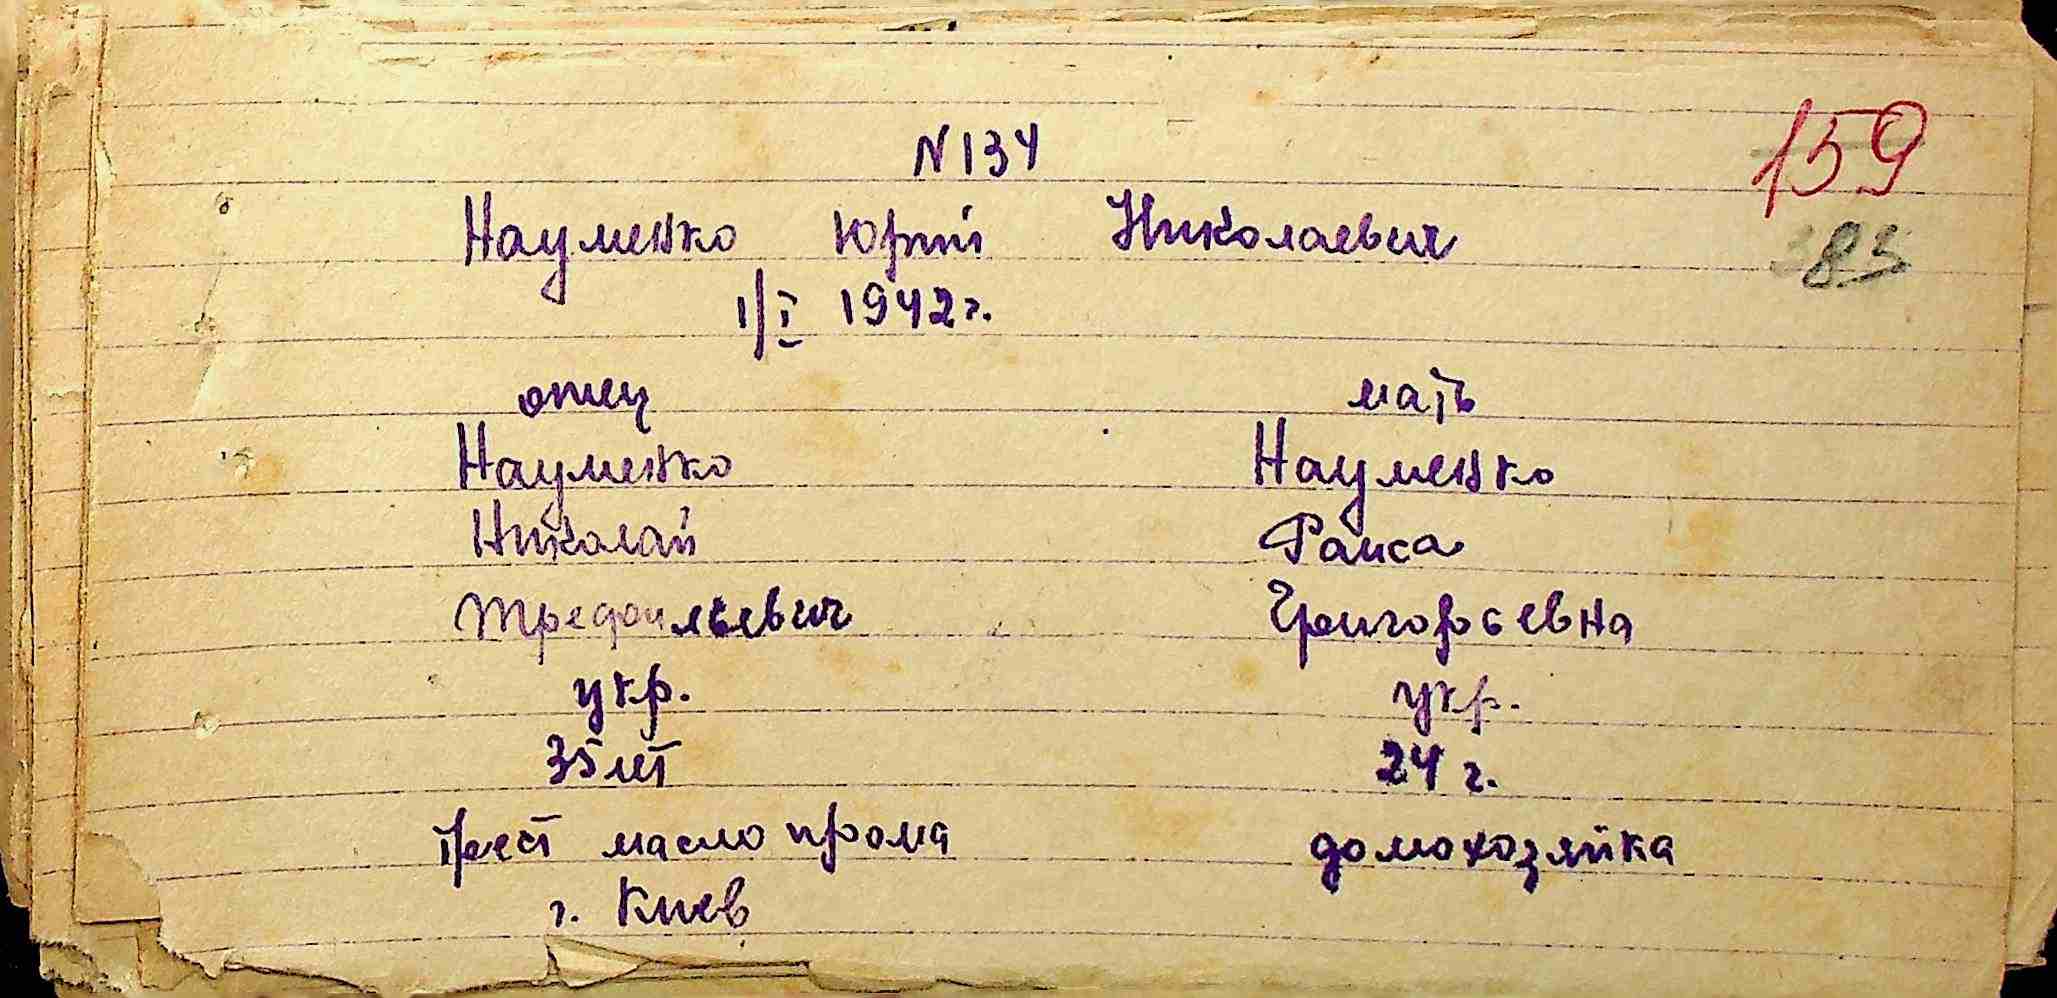 N 134
159
Науменко Юрий Николаевич
83
1/I 1942 г.
отец мать
Науменко Науменко
Николай Раиса
Григорьевна
укр. укр.
35 лет 24 г.
Трест маслопрома домохозяйка
г. Киев